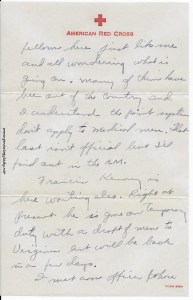 AMERICAN RED CROSS
fellows here just like me
and all wondering what is
going on. Many of them have
been out of the country and
I understand the point system
don't apply to medical men. That
last isn't official but I'll
find out in the AM.
Francis Kenny is
here working also. Right at
present he is gone on temporary
duty with a draft of men to
Virginia but will be back
in a few days.
I met an officer